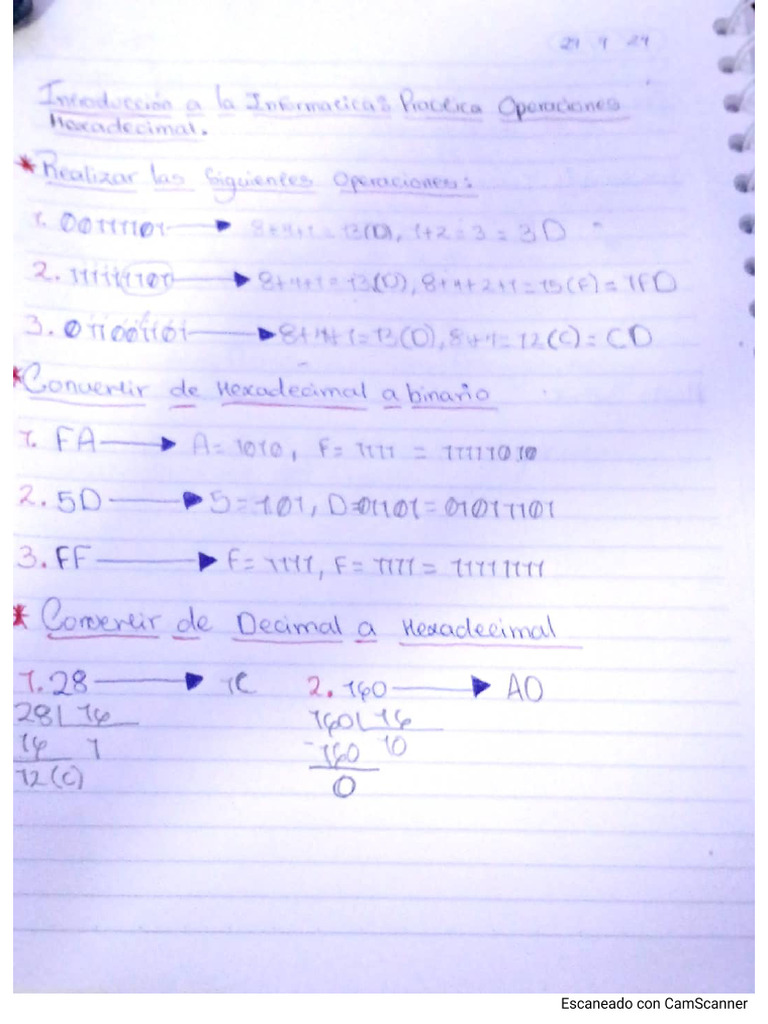 29 9 24
Introducción a la Informatica: Practica Operaciones
Hexadecimal.
* Realizar las Siguientes Operaciones:
1. 00111101 → 8+4+1=13(D), 1+2=3=3D
2. 111111101 → 8+4+1=13(D), 8+4+2+1=15(F)=1FD
3. 011001101 → 8+4+1=13(D), 8+4=12(C)=CD
* Convertir de Hexadecimal a binario
1. FA → A=1010, F=1111 = 11111010
2. 5D → 5=101, D=01101=01011101
3. FF → F=1111, F=1111=11111111
* Convertir de Decimal a Hexadecimal
1. 28 → 1C 2. 160 → A0
28 16 160 16
16 1 -160 10
12(C) 0
Escaneado con CamScanner